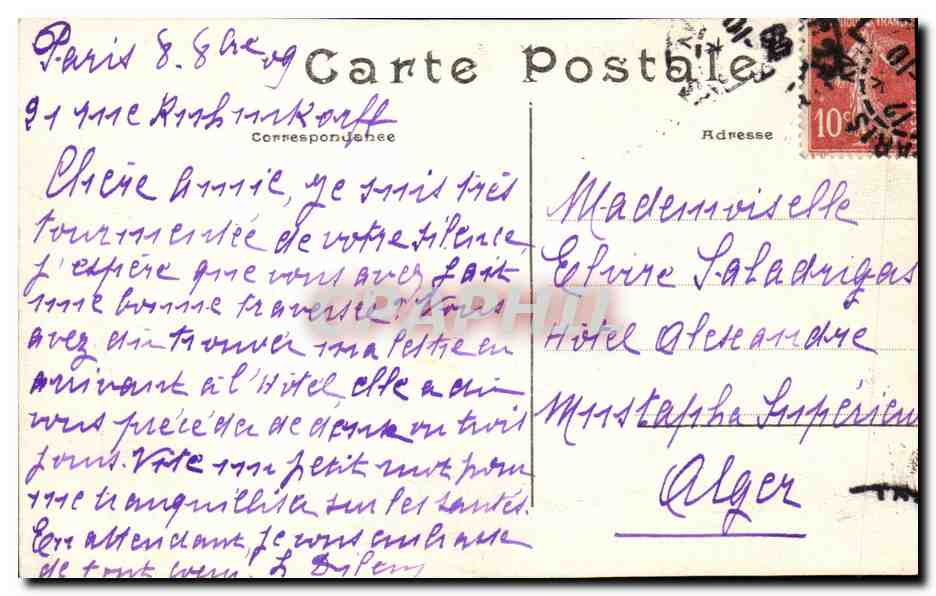 Paris 8. 8bre 09
Carte Postale
21 rue Ruhmkorff
Correspondance
Adresse
10c
PARIS
Chère Amie, je suis très
tourmentée de votre silence,
j'espère que vous avez fait
une bonne traversée! Vous
avez du trouver ma lettre en
arrivant à l'Hôtel elle a du
vous précéder de deux ou trois
jours. Vite un petit mot pour
me tranquilliser sur les santés.
En attendant, je vous embrasse
de tout coeur.
Mademoiselle
Elvire Saladrigas
Hôtel Alexandre
Mustapha Supérieur
Alger
CPAPHIL